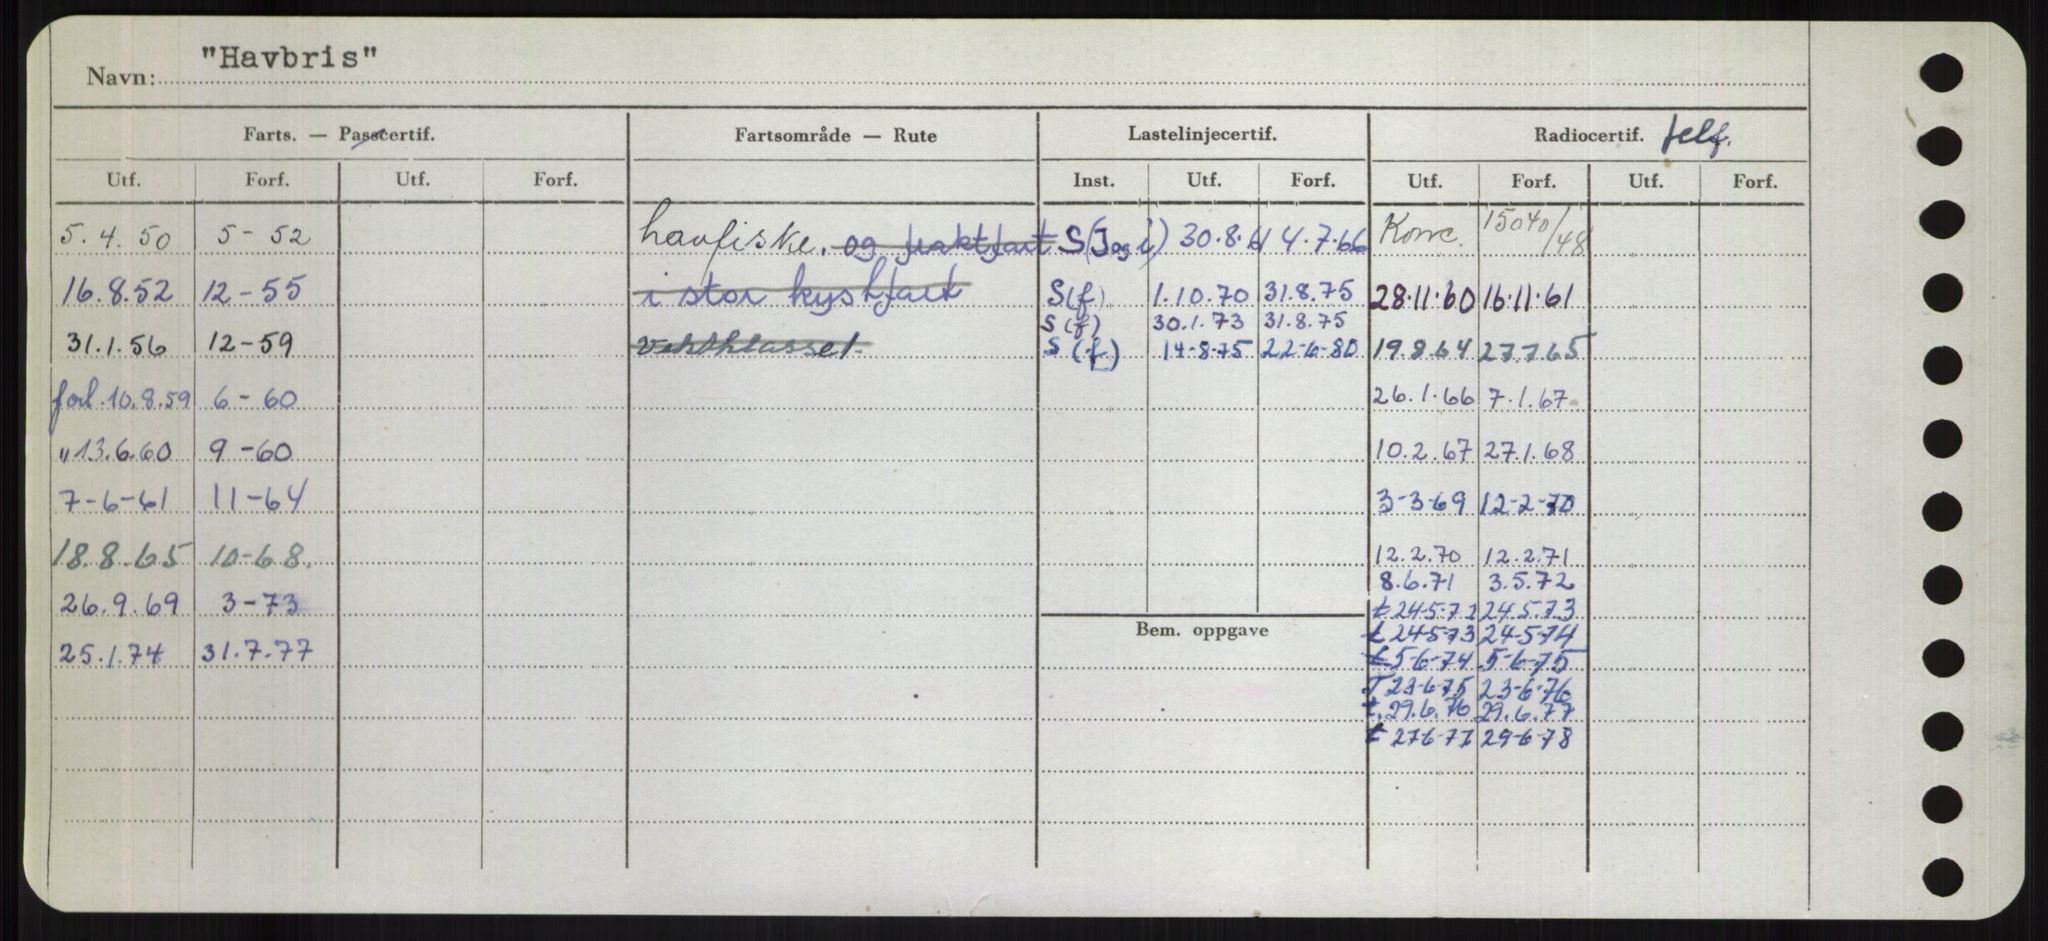 Navn: "Havbris"
Farts. — Passcertif. Fartsområde — Rute Lastelinjecertif. Radiocertif. telf.
Utf. Forf. Utf. Forf. Inst. Utf. Forf. Utf. Forf. Utf. Forf.
5.4.50 5-52 havfiske. og fraktfart S(J og i) 30.8.61 4.7.66 Konc. 15040/48
16.8.52 12-55 i stor kystfart S(f) 1.10.70 31.8.75 28.11.60 16.11.61
S(f) 30.1.73 31.8.75
31.1.56 12-59 S(f) 14-8-75 22-6-80 19.8.64 27.7.65
forl. 10.8.59 6-60 26.1.66 7.1.67
" 13.6.60 9-60 10.2.67 27.1.68
7-6-61 11-64 3-3-69 12-2-70
18.8.65 10-68. 12.2.70 12.2.71
8.6.71 3.5.72
26.9.69 3-73 t 24-5-72 24.5.73
Bem. oppgave t 24-5-73 24-5-74
25.1.74 31.7.77 t 5-6-74 5-6-75
T 23-6-75 23-6-76
t. 29.6.76 29.6.77
t 27-6-77 29-6-78